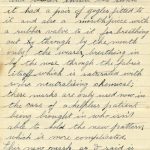 it had a pair of goggles fitted to
it and also a mouthpiece with
a rubber valve to it for breathing
out by through by the mouth
only. The wearer breathing in
by the nose through the fabric
itself which is saturated with
some neutralising chemical,
these masks are only used now in
the case of a helpless patient
being brought in who isn't
able to hold the new pattern,
which is more complicated.